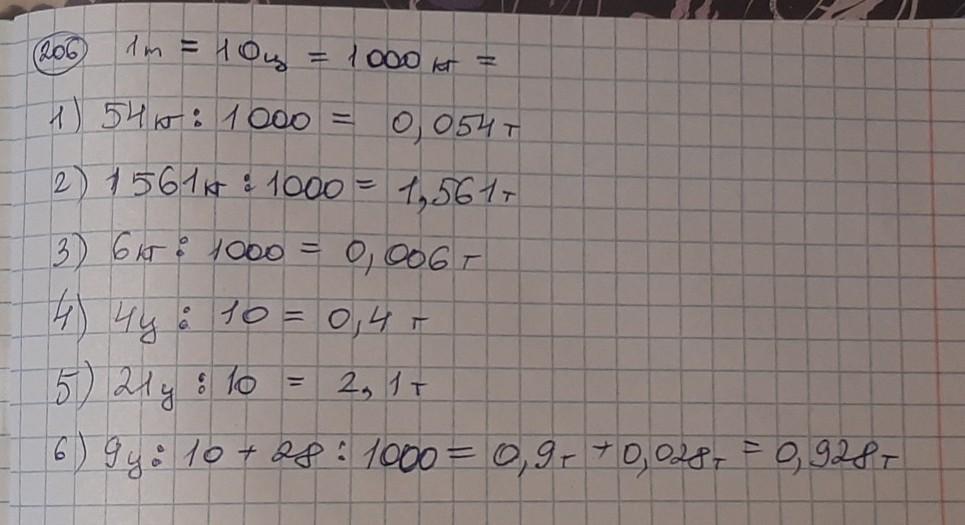 206 1т = 10ц = 1000 кг =
1) 54кг : 1000 = 0,054 т
2) 1561кг : 1000 = 1,561т
3) 6кг : 1000 = 0,006 т
4) 4ц : 10 = 0,4 т
5) 21ц : 10 = 2,1 т
6) 9ц : 10 + 28 : 1000 = 0,9т + 0,028т = 0,928т